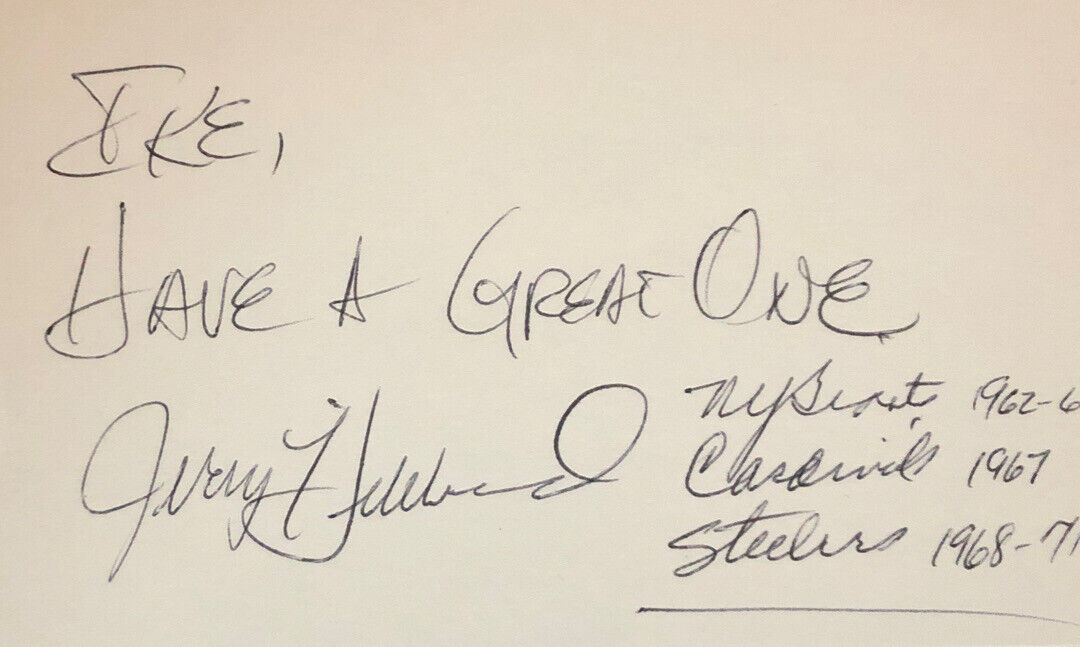 IKE,
HAVE A GREAT ONE
Jerry Hillebrand
NY Giants 1962-6
Cardinals 1967
Steelers 1968-71